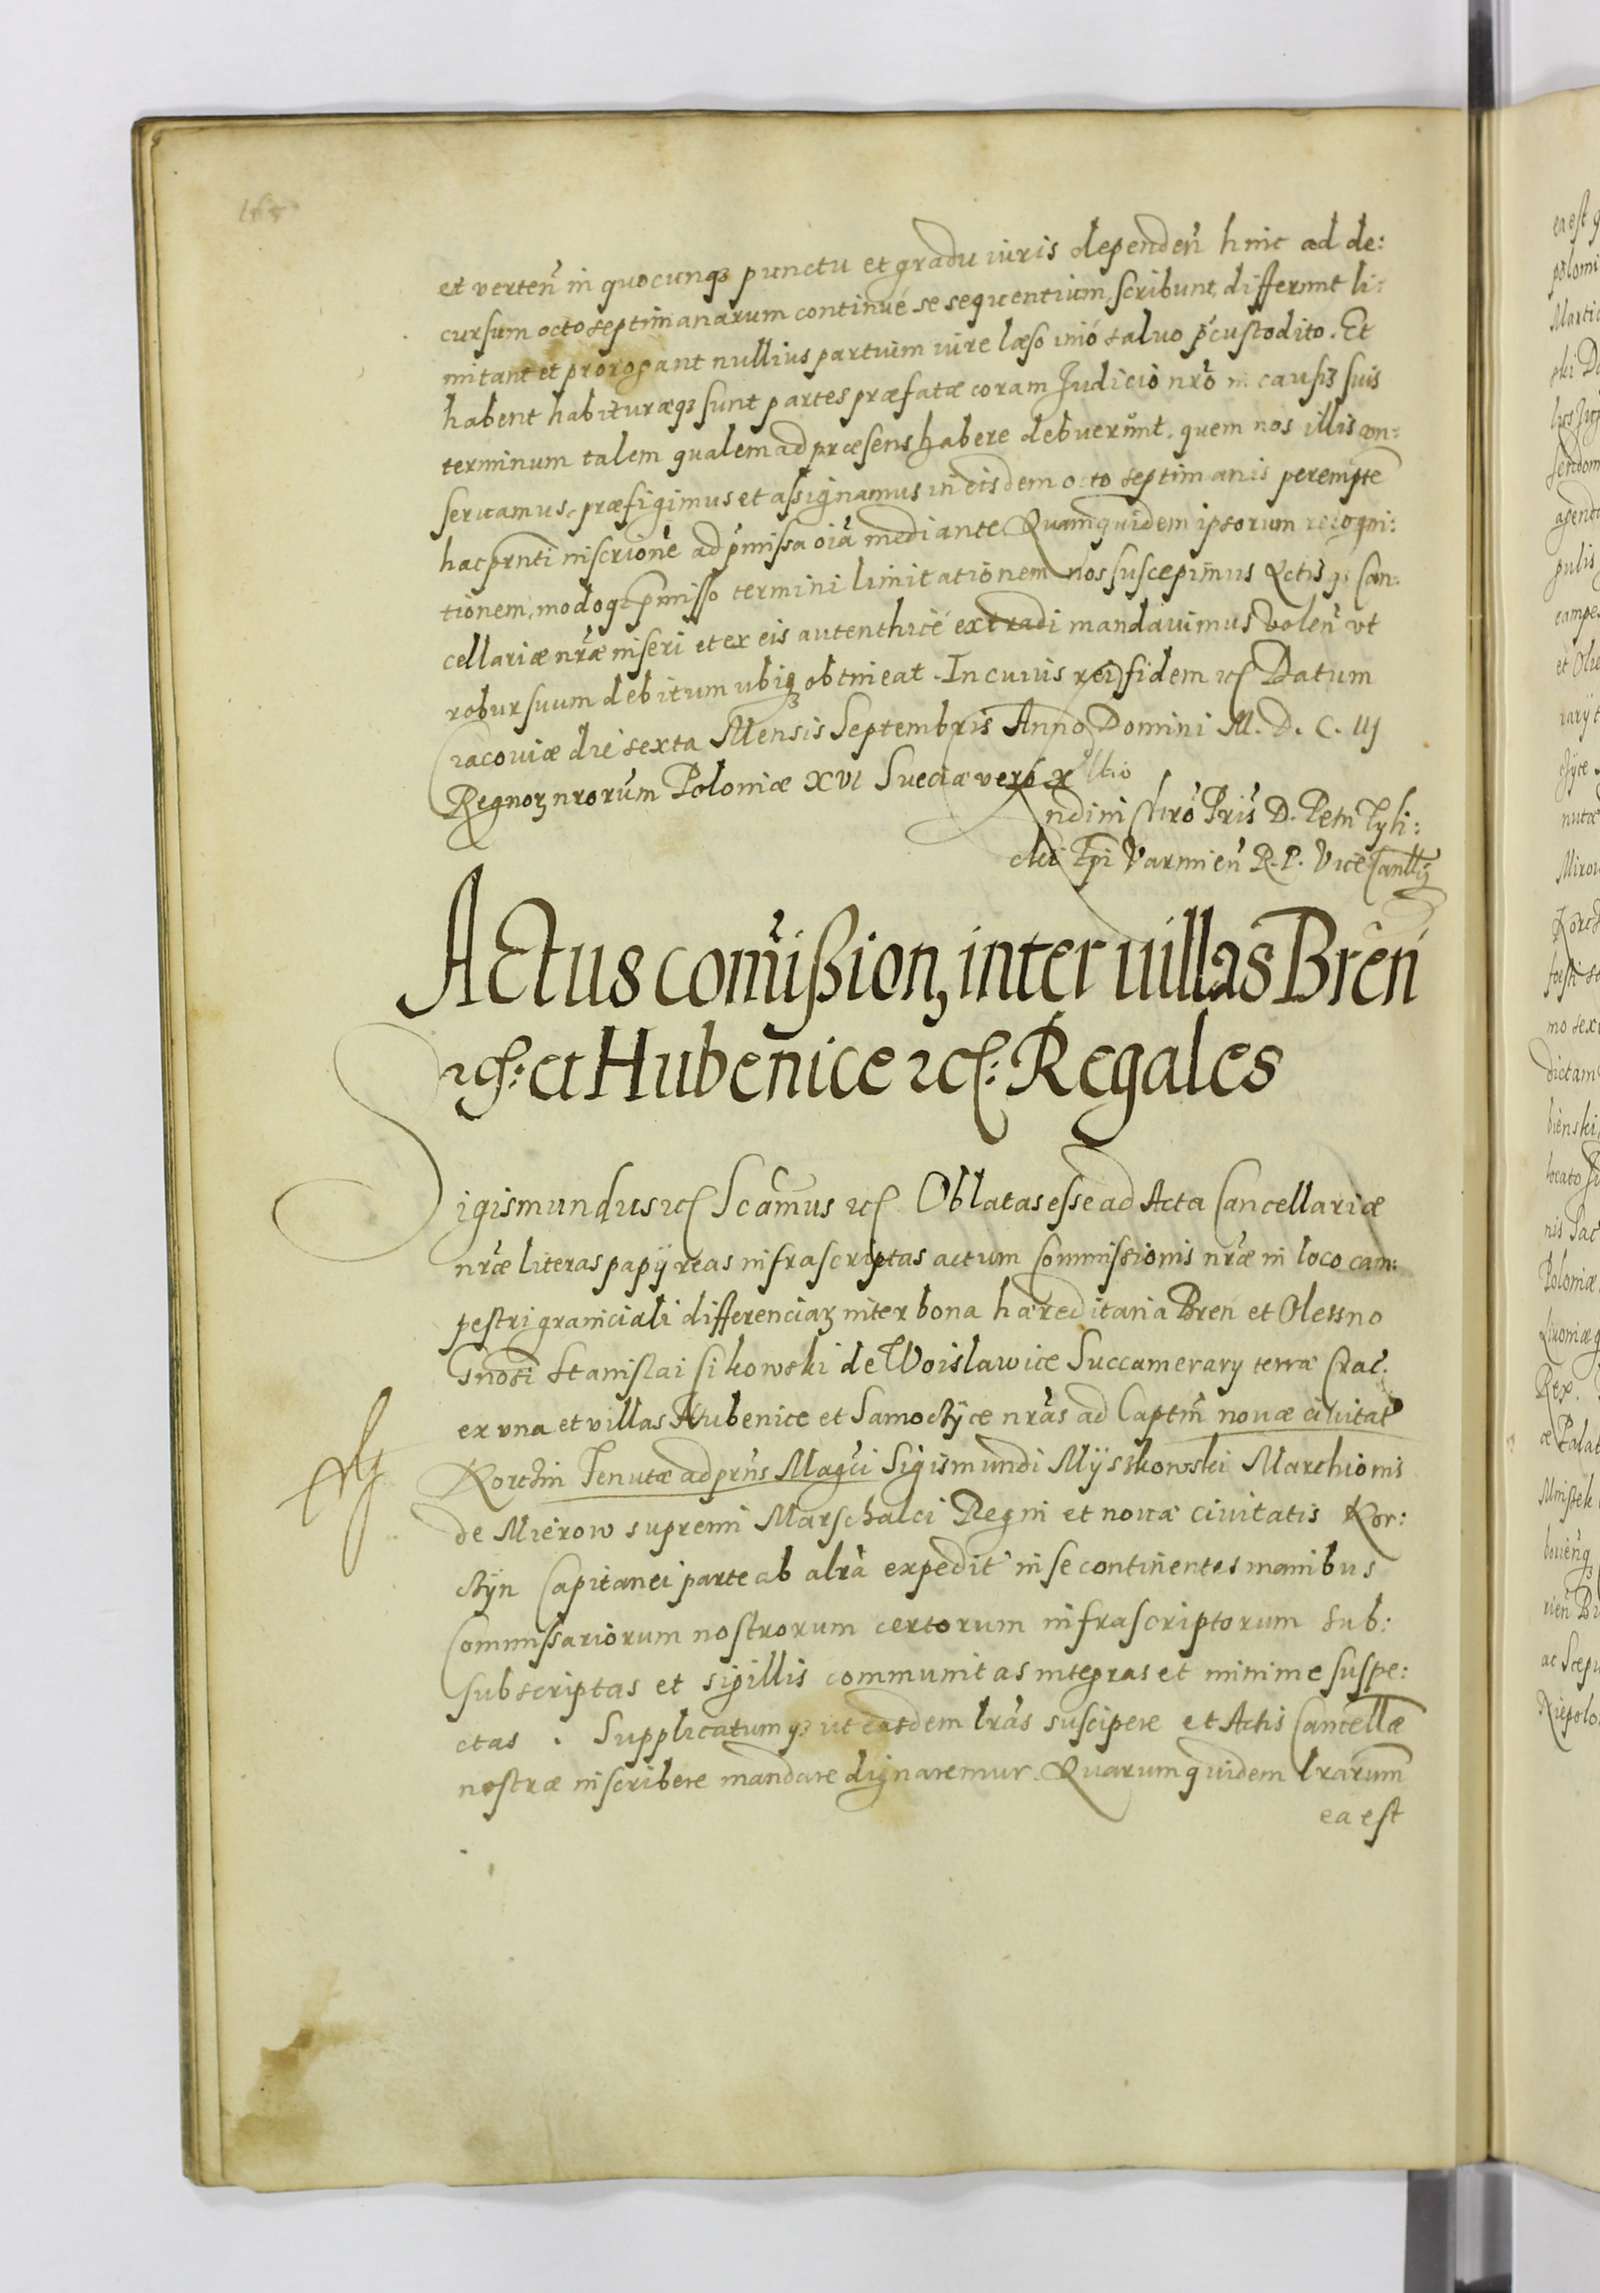 et verteñ in quocunqꝫ punctu et gradu iuris dependeñ hinc ad de:
cursum octo septimanarum continué se sequentium, scribunt, differunt li:
mitant et prorogant nullius partium iure læso imó salvo p̃custodito. Et
habent habituræqꝫ sunt partes præfatæ coram Judicio nrõ in causis suis
terminum talem qualem ad præsens habere debuerunt. quem nos illis con:
servamus, præfigimus et assignamus in eisdem octo septimanis perempte
hac prñti inscrione ad p̃missa oiã mediante. Quamquidem ipsorum recogni:
tionem, modoqꝫ p̃misso termini limitationem nos suscepimus Actisqꝫ Can:
cellariæ nræ̃ inseri et ex eis autenthicé extradi mandavimus voleñ vt
robur suum debitum ubiqꝫ obtineat. In cuius rei fidem ꝛcʃ Datum
Cracoviæ die sexta Mensis Septembris Anno Domini M. D. C. IIJ
Regnoꝝ nrorum Poloniæ XVI Sueciæ vero X
Rndi in Chrõ Pris̃ D. Petri Tyli:
cki Epĩ Varmieñ R. P. Vice Cancllꝫ
Actus com̃ißion, inter uillas Breń
ꝛcʃ: et Hubenice ꝛcʃ: Regales
Sigismundus ꝛcʃ Scam̃us ꝛcʃ Oblatas esse ad Acta Cancellariæ
nræ̃ literas papÿreas infrascriptas actum Commissionis nræ̃ in loco cam:
pestri graniciali differenciaꝝ inter bona hæreditaria Breń et Olessno
Gnosi Stanislai Cikowski de Woislawice Succamerarÿ terræ Crac̃.
ex vna et villas Hubenice et Samoczÿce nrãs ad Captm̃ novæ civitat
Korczin Tenutæ ad prñs Magci Sigismundi Mÿszkowski Marchionis
de Mierow supremi Marschalci Regni et novæ civitatis Kor:
czÿn Capitanei parte ab altrã expedit in se continentes manibus
Commissariorum nostrorum certorum infrascriptorum sub:
subscriptas et sigillis communitas integras et minime suspe:
ctas. Supplicatumqꝫ ut easdem lrãs suscipere et Actis Cancellæ
nostræ inscribere mandare dignaremur. Quarumquidem lrarum
ea est